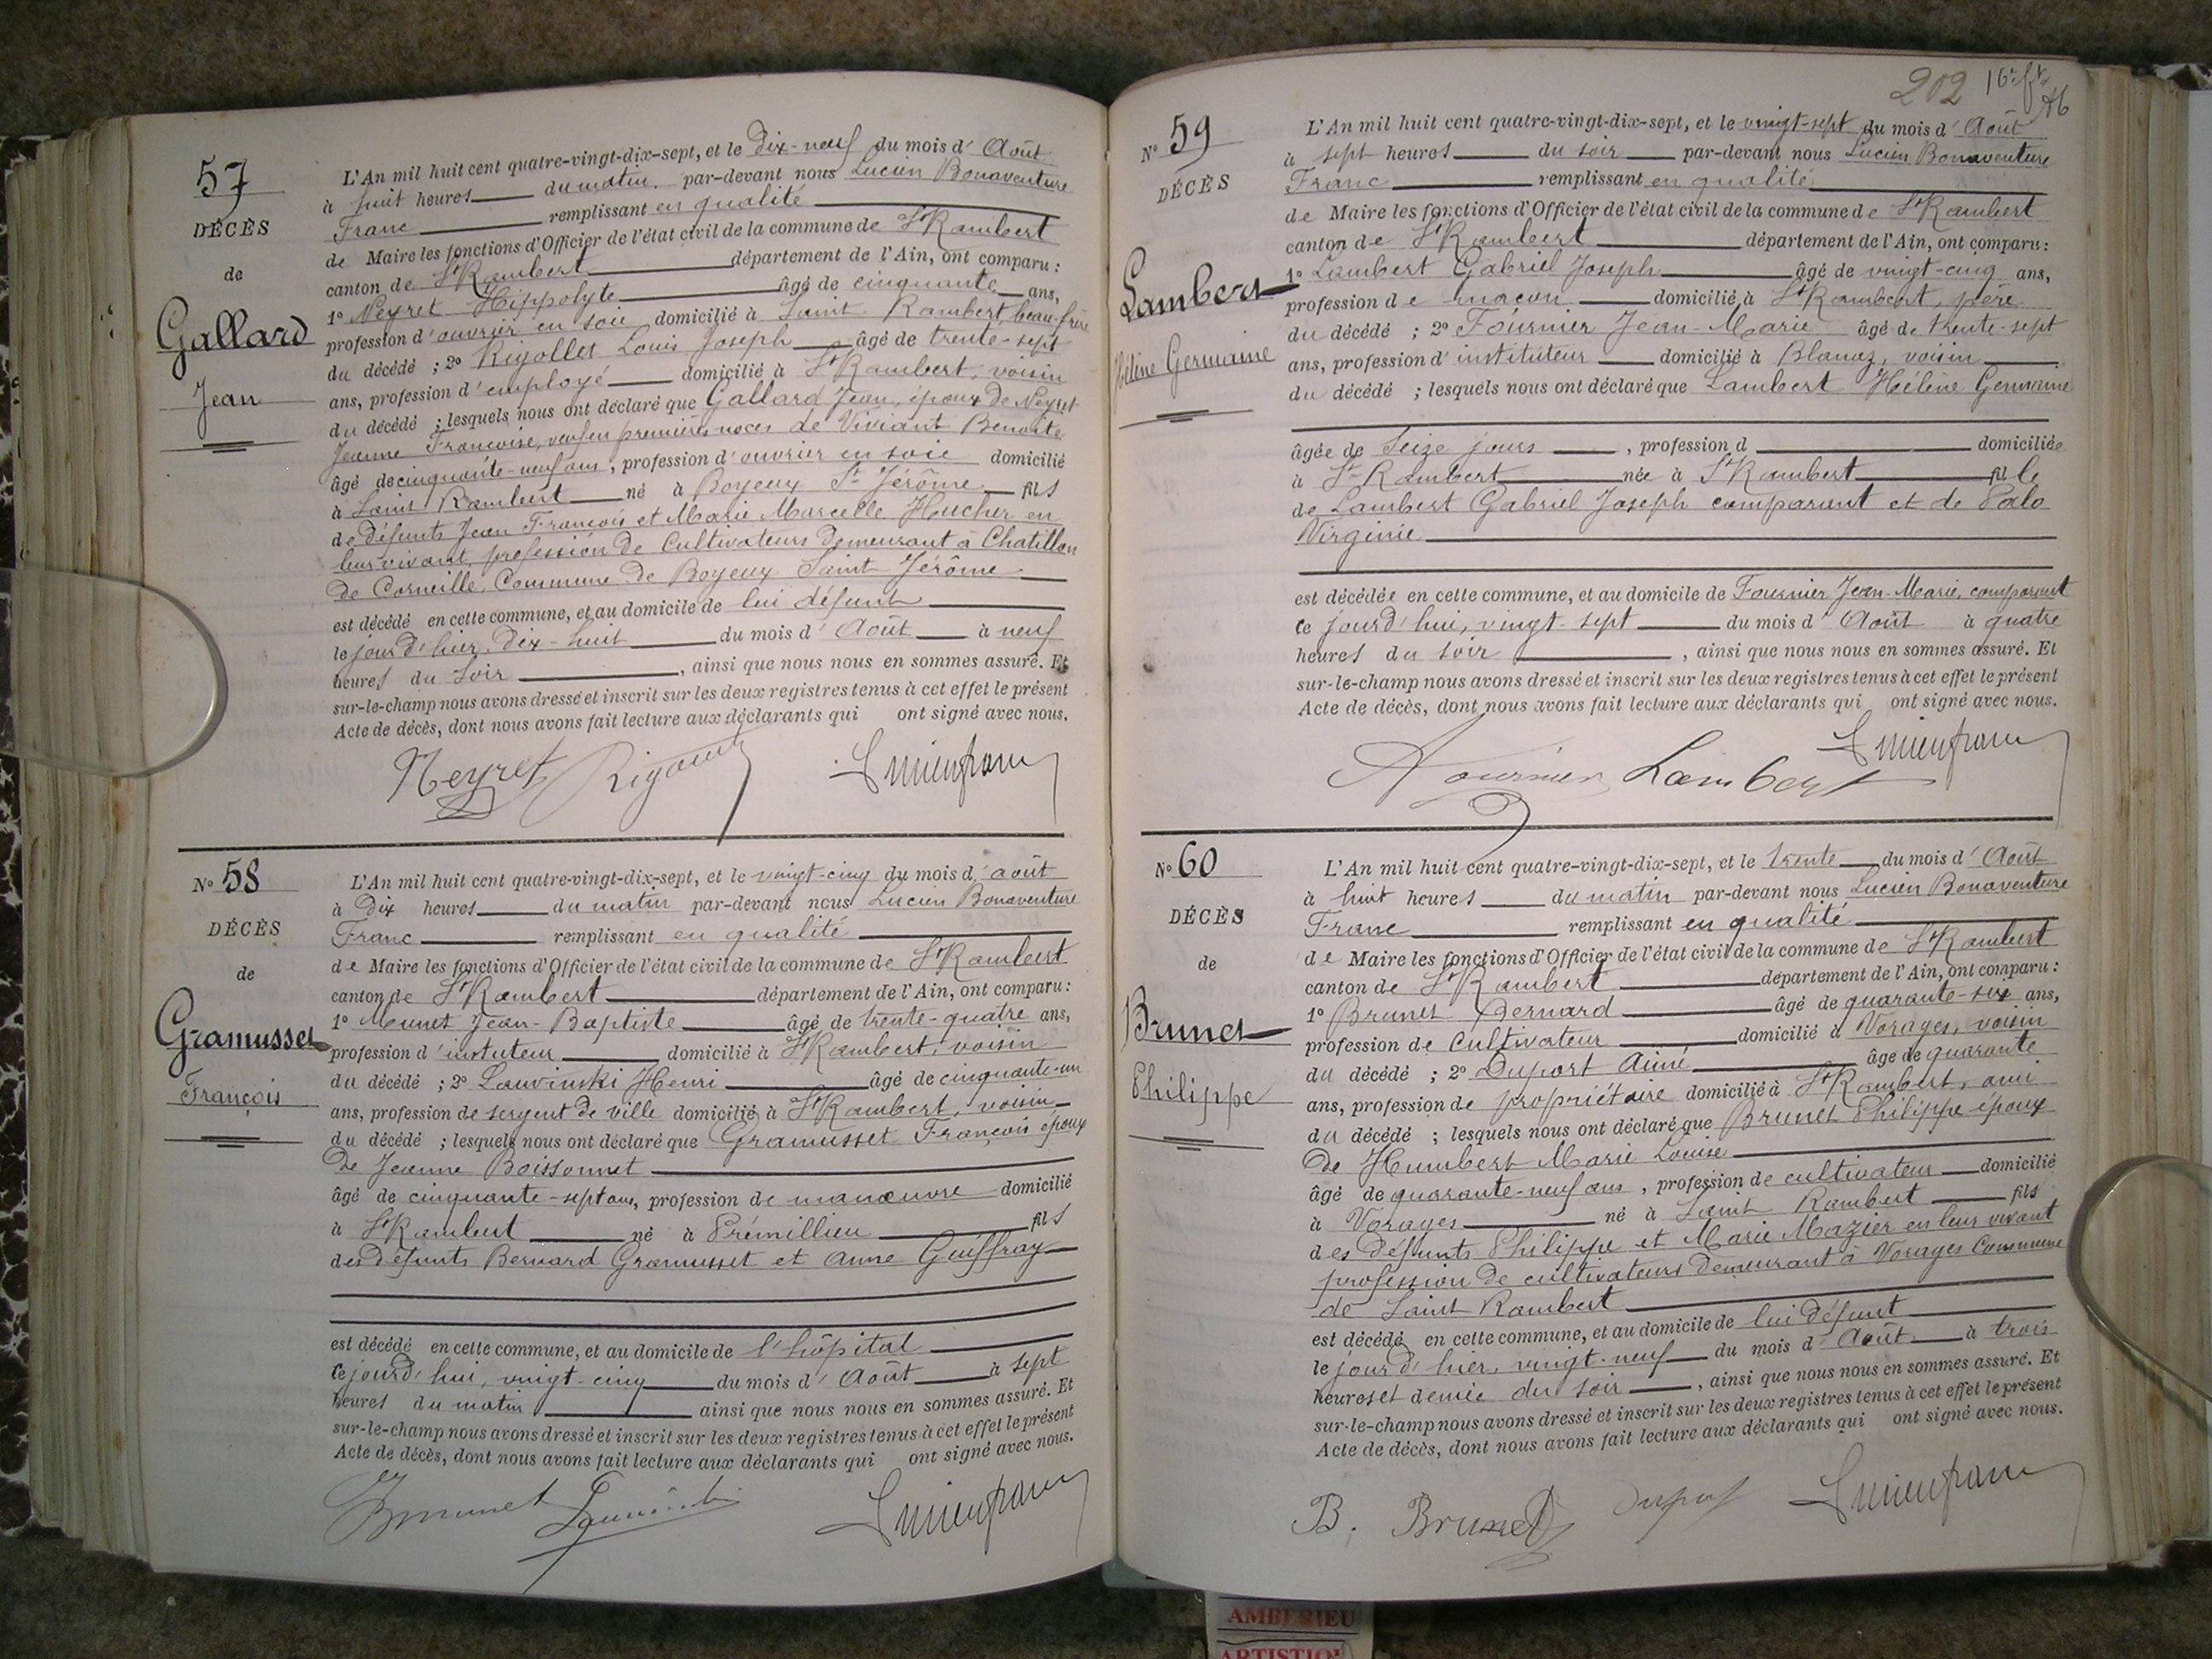 57
DÉCÈS
de
Gallard
Jean
L'An mil huit cent quatre-vingt-dix-sept, et le Dix-neuf du mois d' Août
à huit heures du matin par-devant nous Lucien Bonaventure
Franc remplissant en qualité
de Maire les fonctions d'Officier de l'état civil de la commune de St Rambert
canton de St Rambert département de l'Ain, ont comparu :
1° Neyret Hippolyte âgé de cinquante ans,
profession d' ouvrier en soie domicilié à Saint Rambert, beau-frère
du décédé ; 2° Rigollet Louis Joseph âgé de trente-sept
ans, profession d' employé domicilié à St Rambert, voisin
du décédé ; lesquels nous ont déclaré que Gallard Jean, époux de Neyret
Jeanne Françoise, veuf en premières noces de Viviant Benoite
âgé de cinquante-neuf ans, profession d' ouvrier en soie domicilié
à Saint Rambert né à Boyeux St Jérôme fils
de défunts Jean François et Marie Marcelle Hucher en
leur vivant profession de Cultivateurs demeurant à Chatillon
de Corneille, Commune de Boyeux Saint Jérôme
est décédé en cette commune, et au domicile de lui défunt
le jour d'hier, Dix-huit du mois d' Août à neuf
heures du soir, ainsi que nous nous en sommes assuré. Et
sur-le-champ nous avons dressé et inscrit sur les deux registres tenus à cet effet le présent
Acte de décès, dont nous avons fait lecture aux déclarants qui ont signé avec nous.
Neyret
N° 58
DÉCÈS
de
Gramusset
François
L'An mil huit cent quatre-vingt-dix-sept, et le vingt-cinq du mois d' août
à Dix heures du matin par-devant nous Lucien Bonaventure
Franc remplissant en qualité
de Maire les fonctions d'Officier de l'état civil de la commune de St Rambert
canton de St Rambert département de l'Ain, ont comparu :
1° Munet Jean-Baptiste âgé de trente-quatre ans,
profession d' instituteur domicilié à St Rambert, voisin
du décédé ; 2° Lauvinski Henri âgé de cinquante-un
ans, profession de sergent de ville domicilié à St Rambert, voisin
du décédé ; lesquels nous ont déclaré que Gramusset François époux
de Jeanne Boissonnet
âgé de cinquante-sept ans, profession de manœuvre domicilié
à St Rambert né à Prémillieu fils
des défunts Bernard Gramusset et Anne Guiffray
est décédé en cette commune, et au domicile de l'hôpital
ce jourd'hui, vingt-cinq du mois d' Août à sept
heures du matin ainsi que nous nous en sommes assuré. Et
sur-le-champ nous avons dressé et inscrit sur les deux registres tenus à cet effet le présent
Acte de décès, dont nous avons fait lecture aux déclarants qui ont signé avec nous.
202
N° 59
DÉCÈS
Lambert
Hélène Germaine
L'An mil huit cent quatre-vingt-dix-sept, et le vingt-sept du mois d' Août
à sept heures du soir par-devant nous Lucien Bonaventure
Franc remplissant en qualité
de Maire les fonctions d'Officier de l'état civil de la commune de St Rambert
canton de St Rambert département de l'Ain, ont comparu :
1° Lambert Gabriel Joseph âgé de vingt-cinq ans,
profession de maçon domicilié à St Rambert, père
du décédé ; 2° Fournier Jean-Marie âgé de trente-sept
ans, profession d' instituteur domicilié à Blanaz, voisin
du décédé ; lesquels nous ont déclaré que Lambert Hélène Germaine
âgée de Seize jours, profession d domiciliée
à St-Rambert née à St Rambert fille
de Lambert Gabriel Joseph comparant et de Palo
Virginie
est décédée en cette commune, et au domicile de Fournier Jean-Marie, comparant
ce jourd'hui, vingt-sept du mois d' Août à quatre
heures du soir, ainsi que nous nous en sommes assuré. Et
sur-le-champ nous avons dressé et inscrit sur les deux registres tenus à cet effet le présent
Acte de décès, dont nous avons fait lecture aux déclarants qui ont signé avec nous.
Fournier Lambert
N° 60
DÉCÈS
de
Brunet
Philippe
L'An mil huit cent quatre-vingt-dix-sept, et le trente du mois d' Août
à huit heures du matin par-devant nous Lucien Bonaventure
Franc remplissant en qualité
de Maire les fonctions d'Officier de l'état civil de la commune de St Rambert
canton de St Rambert département de l'Ain, ont comparu :
1° Brunet Bernard âgé de quarante-six ans,
profession de Cultivateur domicilié à Vorages, voisin
du décédé ; 2° Duport Aimé âgé de quarante
ans, profession de propriétaire domicilié à St Rambert, ami
du décédé ; lesquels nous ont déclaré que Brunet Philippe époux
de Humbert Marie Louise
âgé de quarante-neuf ans, profession de cultivateur domicilié
à Vorages né à Saint Rambert fils
des défunts Philippe et Marie Mazier en leur vivant
profession de cultivateurs demeurant à Vorages Commune
de Saint Rambert
est décédé en cette commune, et au domicile de lui défunt
le jour d'hier, vingt-neuf du mois d' Août à trois
heures et demie du soir, ainsi que nous nous en sommes assuré. Et
sur-le-champ nous avons dressé et inscrit sur les deux registres tenus à cet effet le présent
Acte de décès, dont nous avons fait lecture aux déclarants qui ont signé avec nous.
B. Brunet
AMBERIEU